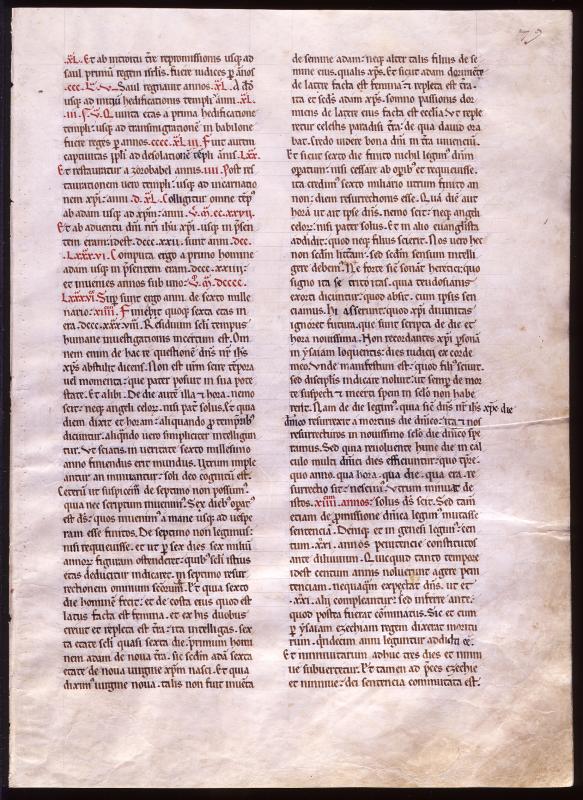 79
.xl. Et ab introitu tre repromissionis usq; ad
saul primũ regem isrlis. fuere iudices p annos
Saul regnauit annos .xl. a dd
usq; ad initiũ hedificationis templi anni .xl.
Quinta etas a prima hedificatione
templi: usq; ad transmigrationẽ in babilone
fuere reges p annos. cccc. xl. iii. Fuit autem
captiuitas ppli ad desolatione tẽpli annis .lxx.
Et restauratur a zorobabel annis .iiii. Post res
taurationem uero templi: usq; ad incarnatio
nem xpi: anni .d. xl. Colligitur omne tẽps
ab adam usq; ad xpm: anni
Et ab aduentu dñi nri ihu xpi: usq; in psen
tem eram: idest. dccc.xxii. sunt anni. dcc.
lxxx.vi. Computa ergo a primo homine
adam usq; in psentem eram. dccc.xxiiii:
et inuenies annos sub uno:
Supsunt ergo anni. de sexto mille
nario: xiiii. Finiebit quoq; sexta etas in
era. dccc.xxx.viii. Residuum scli tempus
humane inuestigationis incertum est. Om
nem enim de hac re questionẽ dñs nr ihs
xps abstulit dicens. Non est urm scire tẽpora
uel momenta: que pater posuit in sua pote
state. Et alibi. De die autẽ illa et hora. nemo
scit: neq; angeli celor: nisi pat solus. Et qua
diem dixit et horam: aliquando p temporibʒ
dicuntur. aliqñdo uero simpliciter intelligun
tur. Ut sciatis in ueritate sexto millesimo
anno finiendus erit mundus. Utrum imple
antur an minuantur: soli deo cognitũ est.
Ceterũ ut suspicem de septimo non possum:
qua nec scriptum inuenim. Sex dieb opat
est ds: quos inuenim a mane usq; ad uespe
ram esse finitos. De septimo non legimus:
nisi requieuisse. et ut p sex dies sex miliũ
annor figuram ostenderet: quibʒ scli istius
etas deducitur indicaret. in septimo resur
rectionem omnium scorum. Et qua sexto
die hominẽ fecit: et de costa eius quod est
latus facta est femina. et ex his duobus
creuit et repleta est tra: ita intelligas. sex
ta etate scli quasi sexta die. primum homi
nem adam de noua tra. sic scdm adã sexta
etate de noua uirgine xpm nasci. Et qua
diximʒ uirgine noua. talis non fuit inuẽta
de semine adam: neq; alter talis filius de se
mine eius. qualis xps. Et sicut adam dormiẽte
de latere facta est femina et repleta est tra.
ita et scds adam xps. somno passionis dor
miens de latere eius facta est ecclia. Ut reple
retur celestis paradisi tra: de qua dauid ora
bat. Credo uidere bona dñi in tra uiuenciũ.
Et sicut sexto die finito nichil legimʒ dñm
opatum: nisi cessare ab opibʒ et requieuisse.
ita credimʒ sexto miliario utrum finito an
non: diem resurrectionis esse. Quã diẽ aut
horã ut ait ipse dñs. nemo scit: neq; angeli
celor: nisi pater solus. Et in alio euanglista
addidit: quod neq; filius scierit. Nos uero hec
non scdm litterã: sed scdm sensum intelli
gere debemʒ. Ne forte sic sonãt heretici: quo
signo ita se tritotas. qua teudosianis
exorti dicuntur: quod absit. cum ipsis sen
ciamus. Hi asserunt: quod xpi diuinitas
ignoret futura. que sunt scripta de die et
hora nouissima. Non recordantes xpi psonã
in ysaiam loquentis: dies iudicii ex corde
meo. Unde manifestum est: quod filiʒ sciuit.
sed discipulis indicare noluit: ut semp de mor
te suspecti et incerti spem in sclo non habe
rent. Nam de die legimʒ. qua sic dñs nr ihs xps die
dñico resurrexit a mortuis die dñico: ita et nos
resurrecturos in nouissimo sclo die dñico spe
ramus. Sed qua reuoluente hunc die in cal
culo multi dñici dies efficiuntur: quo tpre.
quo anno. qua hora. qua die. qua era. re
surrectio sit: nescimʒ. Utrum minuat de
istos .xiiii. annos: solus ds scit. Sed tam
etiam de pmissione dñica legimʒ mutasse
sentenciã. Denique et in genesi legimʒ: cen
tum .xxi. annos penitencie constitutos
ante diluuium. Quicquid tanto tempore
idest centum annis noluerunt agere peni
tenciam. nequaquam expectat dñs. ut et
.xxi. alii compleantur: sed infert ante:
quod postea fuerat cõminatus. Sic et cum
p ysaiam ezechiam regem dixerat moritu
rum. quindecim anni leguntur additi ee.
Et niniuitarum adhuc tres dies et niniu
ue subuertetur. Et tamen ad preces ezechie
et niniue: dei sentencia commutata est.